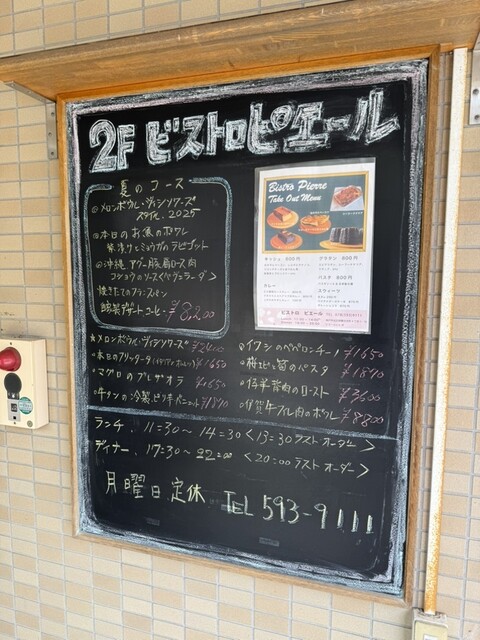 2F ビストロピエール
夏のコース
◎メロンボウル・ヴィシソワーズ
スタイル 2025
◎本日のお魚のポワレ
茶漬りとミョウガのラビゴット
◎沖縄アグー豚肩ロース肉
コショウのソース
焼きたてのフランスパン
デザートコーヒー ¥8,200
Bistro Pierre
Take Out Menu
キッシュ 800円
グラタン 800円
カレー
パスタ 800円
スウィーツ
ビストロ ピエール
★メロンボウル・ヴィシソワーズ ¥2400
●本日のフリッタータ(イタリアンオムレツ) ¥1650
●マグロのプレザオラ ¥1650
●牛タンの冷製、ピリ辛 ¥1870
●イワシのペペロンチーノ ¥1650
●桜エビと筍のパスタ ¥1870
●仔羊背肉のロースト ¥3600
●伊賀牛フィレ肉のポワレ ¥8800
ランチ、11:30〜14:30<13:30ラストオーダー>
ディナー、17:30〜22:00<20:00ラストオーダー>
月曜日定休 TEL 593-9111